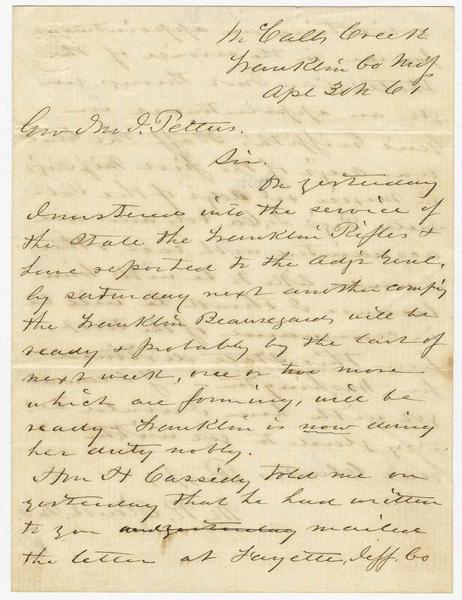 McCalls Creek
Franklin Co Mis
Apl 30th 61
Gov Jno J. Pettus.
Sir.
On yesterday
I mustered into the service of
the State the Franklin Rifles &
have reported to the Adjt Genl,
by saturday next another compy
the Franklin Beauregards will be
ready & probably by the last of
next week, one or two more
which are forming, will be
ready Franklin is now doing
her duty nobly.
Hon H Cassidy told me on
yesterday that he had written
to you and yesterday mailed
the letter at Fayette, Jeff. Co